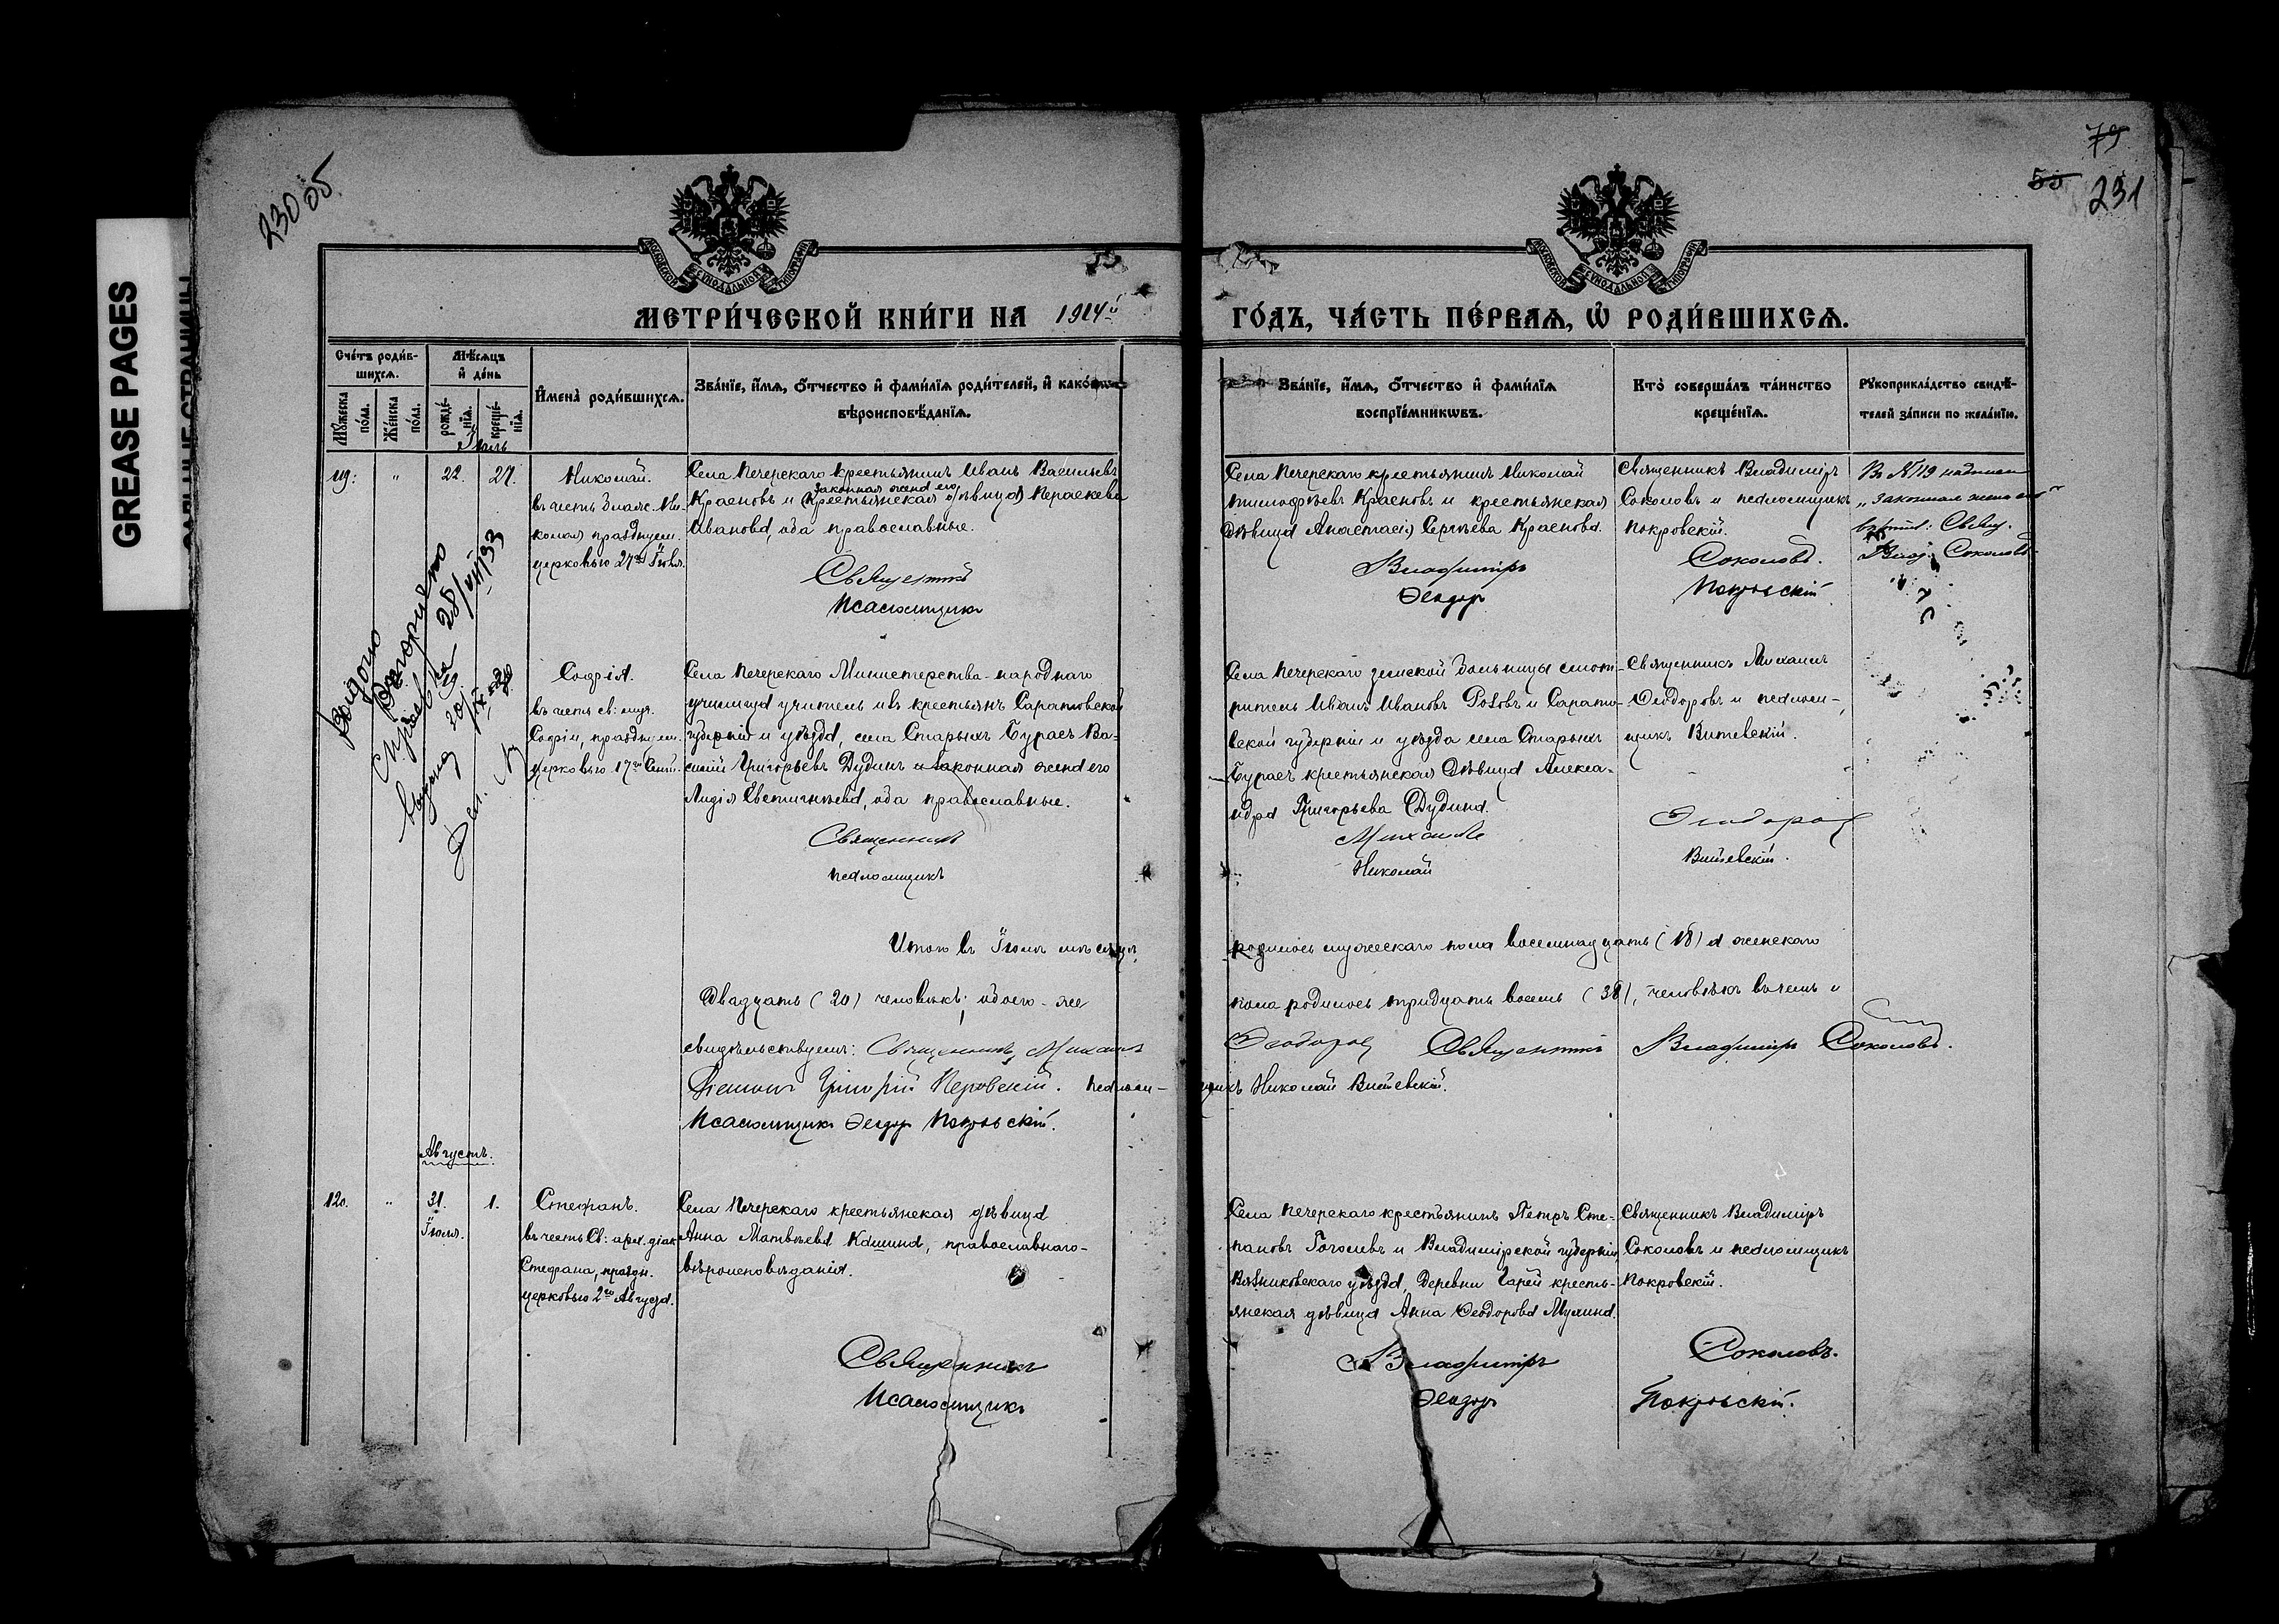 GREASE PAGES
230 об.
79
55
231
МЕТРИ́ЧЕСКОЙ КНИ́ГИ НА 1914й
ГО́ДЪ, ЧА́СТЬ ПЕ́РВАѦ, Ѡ РОДИ́ВШИХСѦ.
Сче́тъ роди́вшихсѧ.
Мꙋ́жеска по́ла.
Же́нска по́ла.
Мѣ́сѧцъ и҆ де́нь
рожде́нїѧ.
креще́нїѧ.
И҆мена̀ роди́вшихсѧ.
Зва́нїе, и҆́мѧ, ѻ҆́тчество и҆ фами́лїѧ роди́телей, и҆ како́гѡ
вѣроисповѣ́данїѧ.
Зва́нїе, и҆́мѧ, ѻ҆́тчество и҆ фами́лїѧ
воспрїе́мникѡвъ.
Кто̀ соверша́лъ та́инство
креще́нїѧ.
Рꙋкоприкла́дство свидѣ́-
телей за́писи по жела́нїю.
Іюль
119. " 22. 27. Николай.
въ честь блаж. Ни-
колая празднуем.
церковью 27го Іюля.
Села Печерскаго крестьянинъ Иванъ Васильевъ
законная жена его
Красновъ и (крестьянская дѣвица) Параскева
Иванова, оба православные.
Священникъ
Псаломщикъ
Села Печерскаго крестьянинъ Николай
Тимофѣевъ Красновъ и крестьянская
дѣвица Анастасія Сергѣева Краснова.
Владиміръ
Ѳеодоръ
Священникъ Владиміръ
Соколовъ и псаломщикъ
Покровскій.
Соколовъ.
Покровскій.
Въ №119 надписан
"законная жена его"
Свящ.
Влад. Соколовъ
28/VII 33
Софія.
въ честь св: муч.
Софіи, празднуем.
церковью 17го Сент.
Села Печерскаго Министерства народнаго
училища учитель изъ крестьянъ Саратовской
губерніи и уѣзда, села Старыхъ Бурасъ Ва-
силій Григорьевъ Дудинъ и законная жена его
Лидія Евтихіева, оба православные.
Священникъ
псаломщикъ
Села Печерскаго земской больницы смот-
ритель Иванъ Ивановъ Розовъ и Сарато-
вской губерніи и уѣзда села Старыхъ
Бурасъ крестьянская дѣвица Алекса-
ндра Григорьева Дудина.
Михаилъ
Николай
Священникъ Михаилъ
Ѳеодоровъ и псалом-
щикъ Витевскій.
Ѳеодоровъ
Витевскій.
Итого въ Іюлѣ мѣсяцѣ
родилось мужескаго пола восемнадцать (18) а женскаго
Двадцать (20) человѣкъ; обоего-же
пола родилось тридцать восемь (38), человѣкъ въ чемъ и
свидѣтельствуемъ: Священникъ Михаилъ
Ѳеодоровъ Священникъ Владиміръ Соколовъ.
Діаконъ Григорій Перовскій. Псалом-
щикъ Николай Витевскій.
Псаломщикъ Ѳеодоръ Покровскій.
Августъ.
120. " 31. 1. Стефанъ.
Іюля.
въ честь Св: арх. діак.
Стефана, праздн.
церковью 2го Августа.
Села Печерскаго крестьянская дѣвица
Анна Матвѣева Кашина, православнаго
вѣроисповѣданія.
Священникъ
Псаломщикъ
Села Печерскаго крестьянинъ Петръ Сте-
пановъ Гоголевъ и Владимірской губерніи,
Вязниковскаго уѣзда, деревни Гарей кресть-
янская дѣвица Анна Ѳеодорова Мумина.
Владиміръ
Ѳеодоръ
Священникъ Владиміръ
Соколовъ и псаломщикъ
Покровскій.
Соколовъ.
Покровскій.